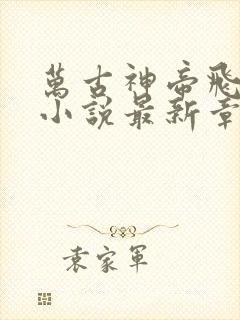 萬古神帝飛
小說最新章
袁家軍